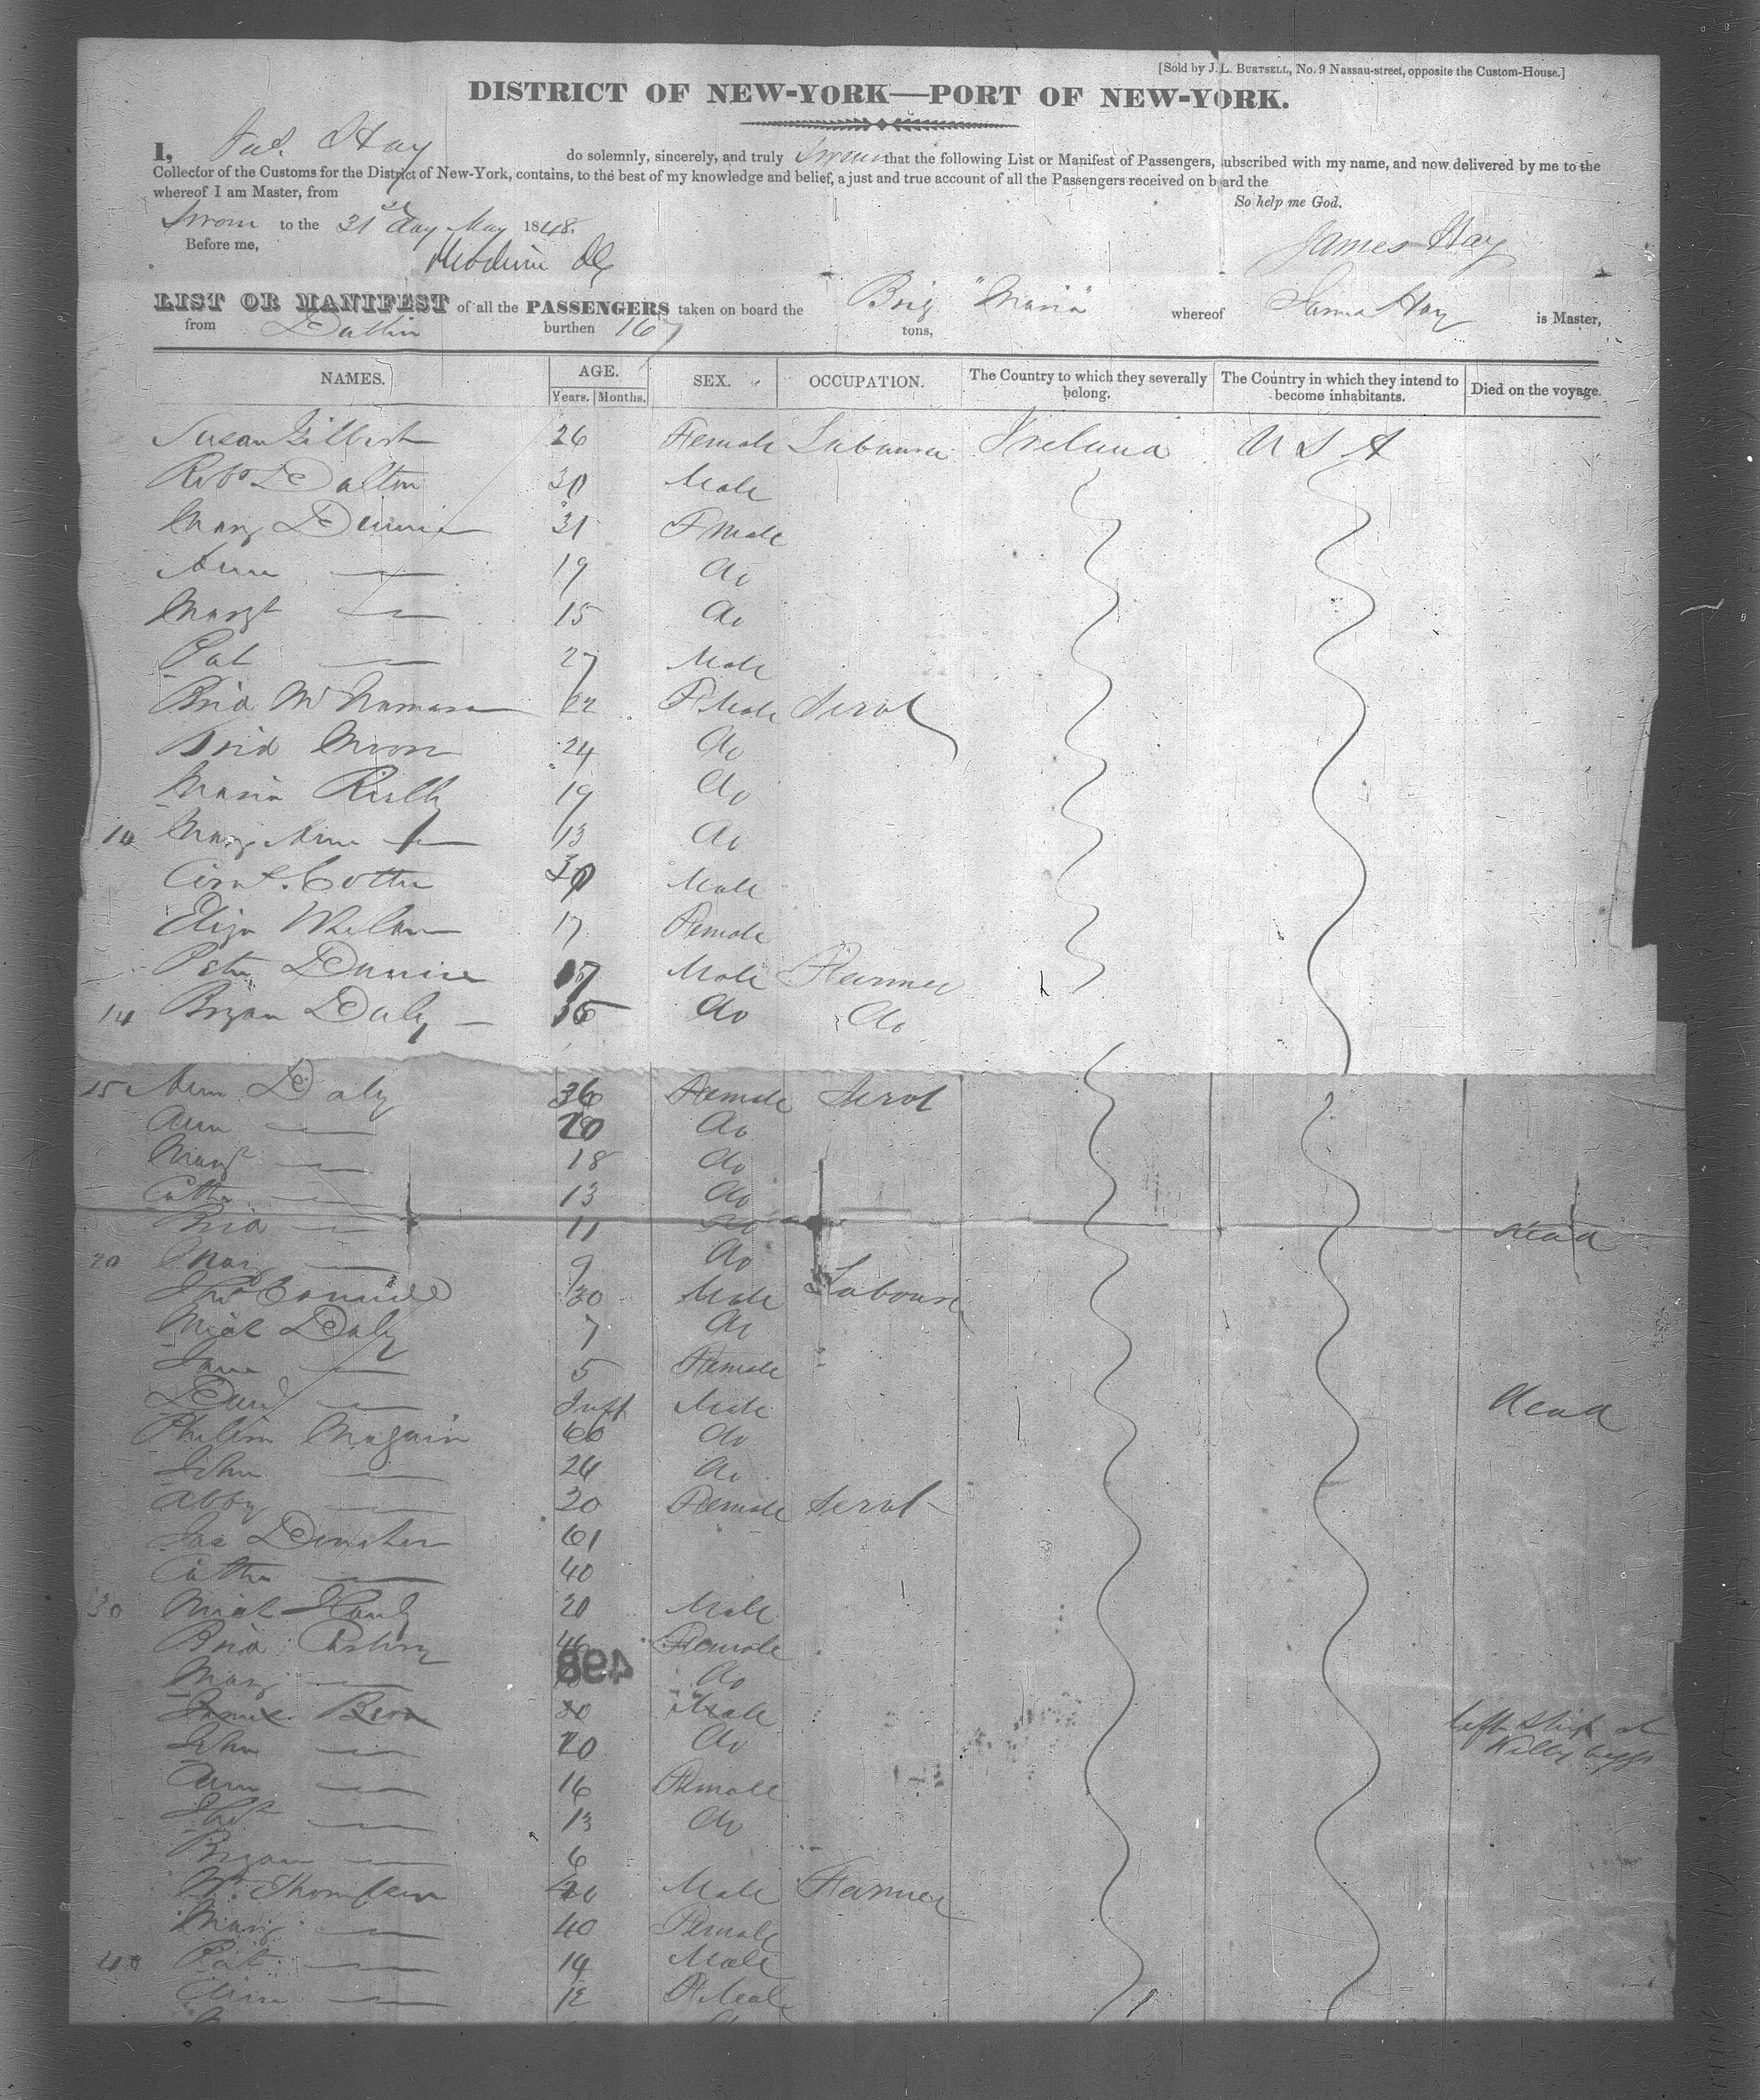 [Sold by J. L. BURTSELL, No. 9 Nassau-street, opposite the Custom-House.]
DISTRICT OF NEW-YORK—PORT OF NEW-YORK.
I, Jas. Hay do solemnly, sincerely, and truly Swear that the following List or Manifest of Passengers, subscribed with my name, and now delivered by me to the
Collector of the Customs for the District of New-York, contains, to the best of my knowledge and belief, a just and true account of all the Passengers received on board the
whereof I am Master, from
So help me God.
Sworn to the 31st day May 1848.
James Hay
Before me,
LIST OR MANIFEST of all the PASSENGERS taken on board the Brig "Maria" whereof James Hay is Master,
from Dublin burthen 167 tons,
NAMES. AGE. SEX. OCCUPATION. The Country to which they severally belong. The Country in which they intend to become inhabitants. Died on the voyage.
Years. Months.
Susan Gilbert 26 Female Ireland U S A
Robt Dalton 30 Male
Mary 31 Female
Ann — 19 do
Margt — 15 do
Pat — 27 Male
Brid McNamara 22 Female Servt
Brid 24 do
Maria Rielly 19 do
10 Mary Ann — 13 do
Male
Eliza Whelan 17 Female
Peter 17 Male Farmer
14 Bryan Daly — 35 do do
15 Ann Daly 36 Female Servt
Ann — 20 do
Margt — 18 do
Cathe — 13 do
Brid — 11 do dead
20 Mary — 9 do
30 Male Labourer
Mich Daly 7 do
Jane — 5 Female
Danl — Inft Male dead
Philim Maguire 60 do
John — 24 do
Abby — 20 Female Servt
Jas 61
Cathe — 40
30 Mich 20 Male
Brid 46 Female
498
Mary — do
James 20 Male left Ship at Killybeggs
John — 20 do
Ann — 16 Female
— 13 do
Bryan — 6
Wm Thompson Male Farmer
Mary — 40 Female
40 Pat — 14 Male
Ann — 12 Female